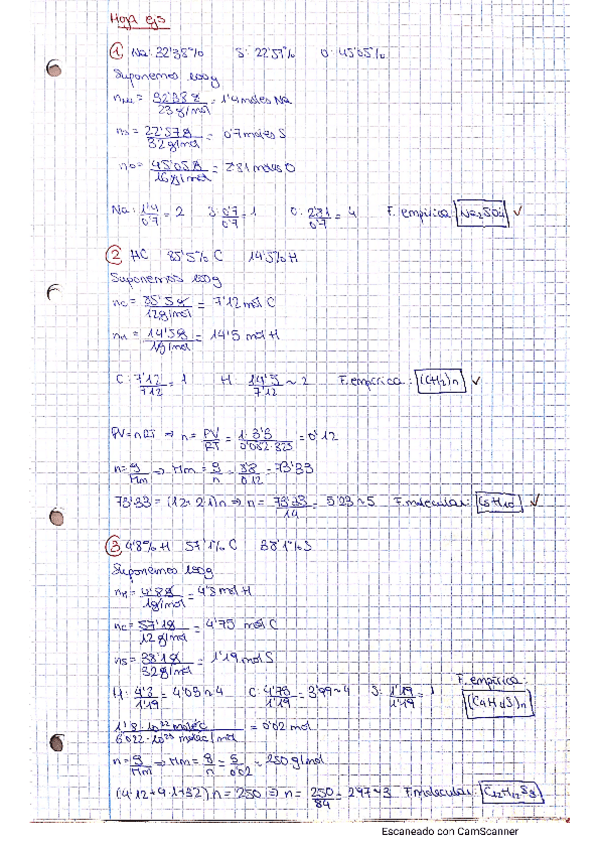 Hoja ejs
1. Na: 32'38% S: 22'57% O: 45'05%
Suponemos 100g
nNa = 32'38 g / 23 g/mol = 1'4 moles Na
nS = 22'57g / 32 g/mol = 0'7 moles S
nO = 45'05g / 16g/mol = 2'81 moles O
Na: 1'4 / 0'7 = 2 S: 0'7 / 0'7 = 1 O: 2'81 / 0'7 = 4 F. empírica Na₂SO₄ ✓
2 HC 85'5% C 14'5% H
Suponemos 100g
nC = 85'5g / 12g/mol = 7'12 mol C
nH = 14'5g / 1g/mol = 14'5 mol H
C: 7'12 / 7'12 = 1 H: 14'5 / 7'12 ~ 2 F. empírica: (CH₂)n ✓
PV = nRT ⇒ n = PV / RT = 1·3'3 / 0'082·323 = 0'12
n = g / Mm ⇒ Mm = g / n = 8'8 / 0'12 = 73'33
73'33 = (12+2·1)n ⇒ n = 73'33 / 14 = 5'23 ~ 5 F. molecular: C₅H₁₀ ✓
3. 4'8% H 57'1% C 38'1% S
Suponemos 100g
nH = 4'8g / 1g/mol = 4'8 mol H
nC = 57'1g / 12g/mol = 4'75 mol C
nS = 38'1g / 32g/mol = 1'19 mol S
H: 4'8 / 1'19 = 4'03 ~ 4 C: 4'75 / 1'19 = 3'99 ~ 4 S: 1'19 / 1'19 = 1 F. empírica: (C₄H₄S)n
1'8·10²² moléc / 6'022·10²³ moléc/mol = 0'02 mol
n = g / Mm ⇒ Mm = g / n = 5 / 0'02 = 250 g/mol
(4·12+4·1+32)·n = 250 ⇒ n = 250 / 84 = 2'97 ~ 3 F. molecular: C₁₂H₁₂S₃
Escaneado con CamScanner